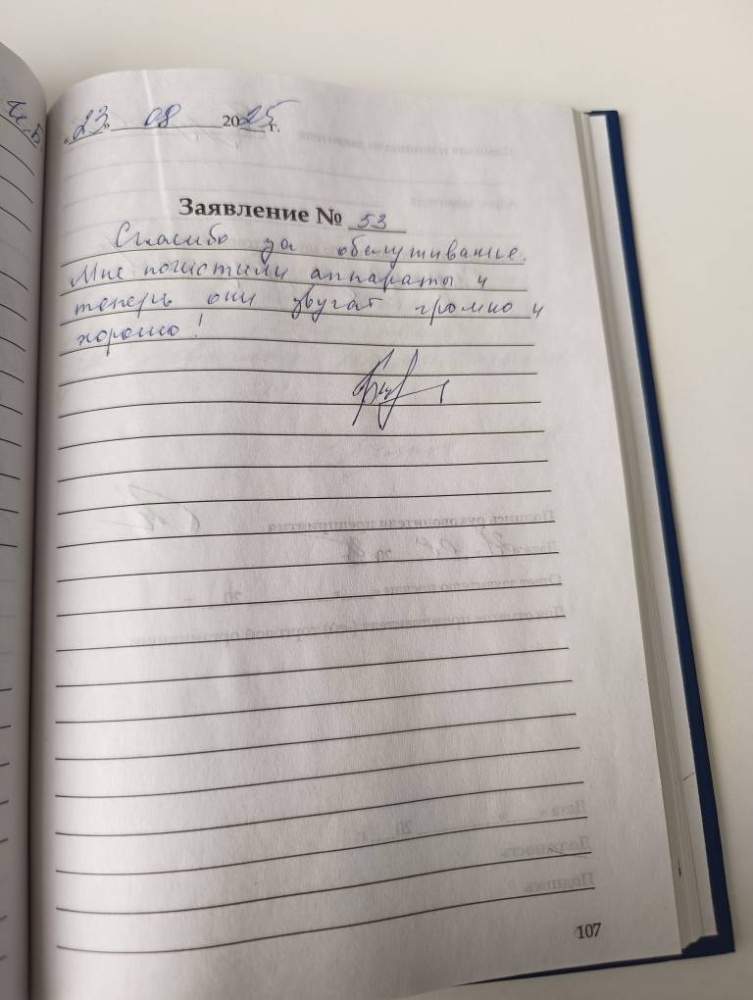 "23" 08 2025 г.
Заявление № 53
Спасибо за обслуживание.
Мне почистили аппараты и
теперь они звучат громко и
хорошо!
107